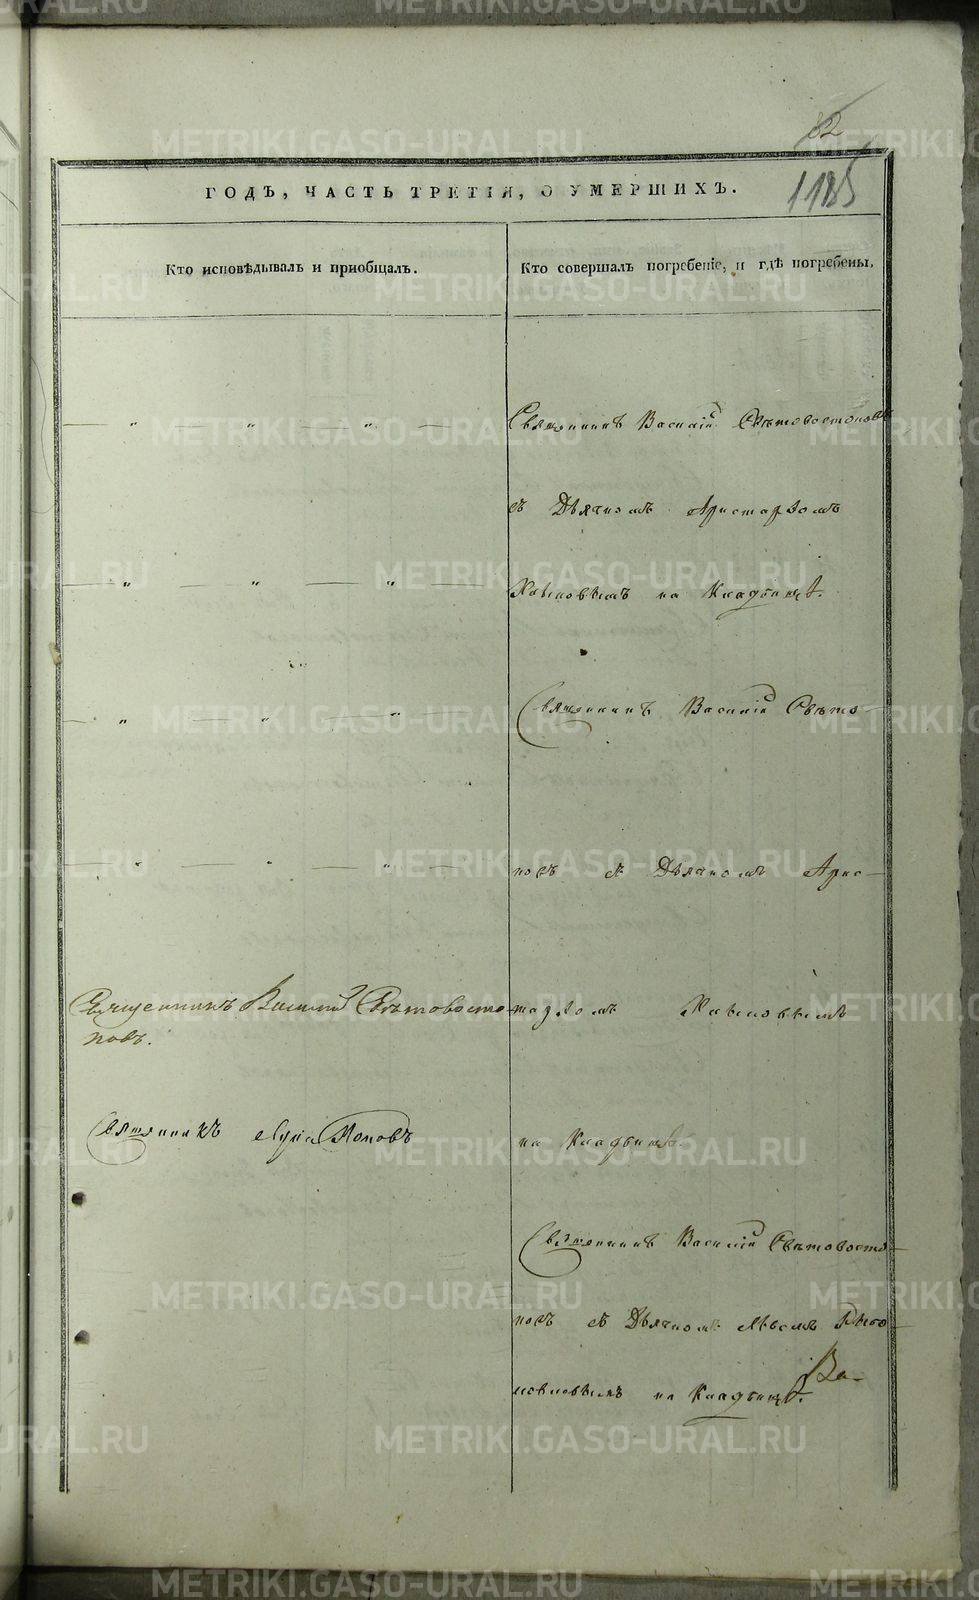 METRIKI.GASO-URAL.RU
82
1185
ГОДЪ, ЧАСТЬ ТРЕТІЯ, О УМЕРШИХЪ.
Кто исповѣдывалъ и пріобщалъ.
Кто совершалъ погребеніе, и гдѣ погребены.
— " — " — " —
Священникъ Василій Свѣтовостоковъ
съ Дьячкомъ Аристархомъ
— " — " — " —
на Кладбищѣ.
— " — " — " —
Священникъ Василій Свѣто-
— " — " — " —
ковъ съ Дьячкомъ Арис-
Священникъ Василій Свѣтовосто-
ковъ.
тархомъ
Священникъ Лука Поповъ
на Кладбищѣ.
Священникъ Василій Свѣтовосто-
ковъ съ Дьячкомъ
на Кладбищѣ.
Ва-